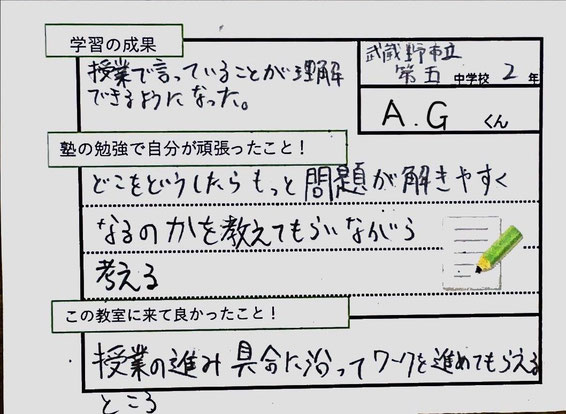 学習の成果
授業で言っていることが理解
できるようになった。
武蔵野市立
第五 中学校 2 年
A.G くん
塾の勉強で自分が頑張ったこと！
どこをどうしたらもっと問題が解きやすく
なるのかを教えてもらいながら
考える
この教室に来て良かったこと！
授業の進み具合に沿ってワークを進めてもらえる
ところ